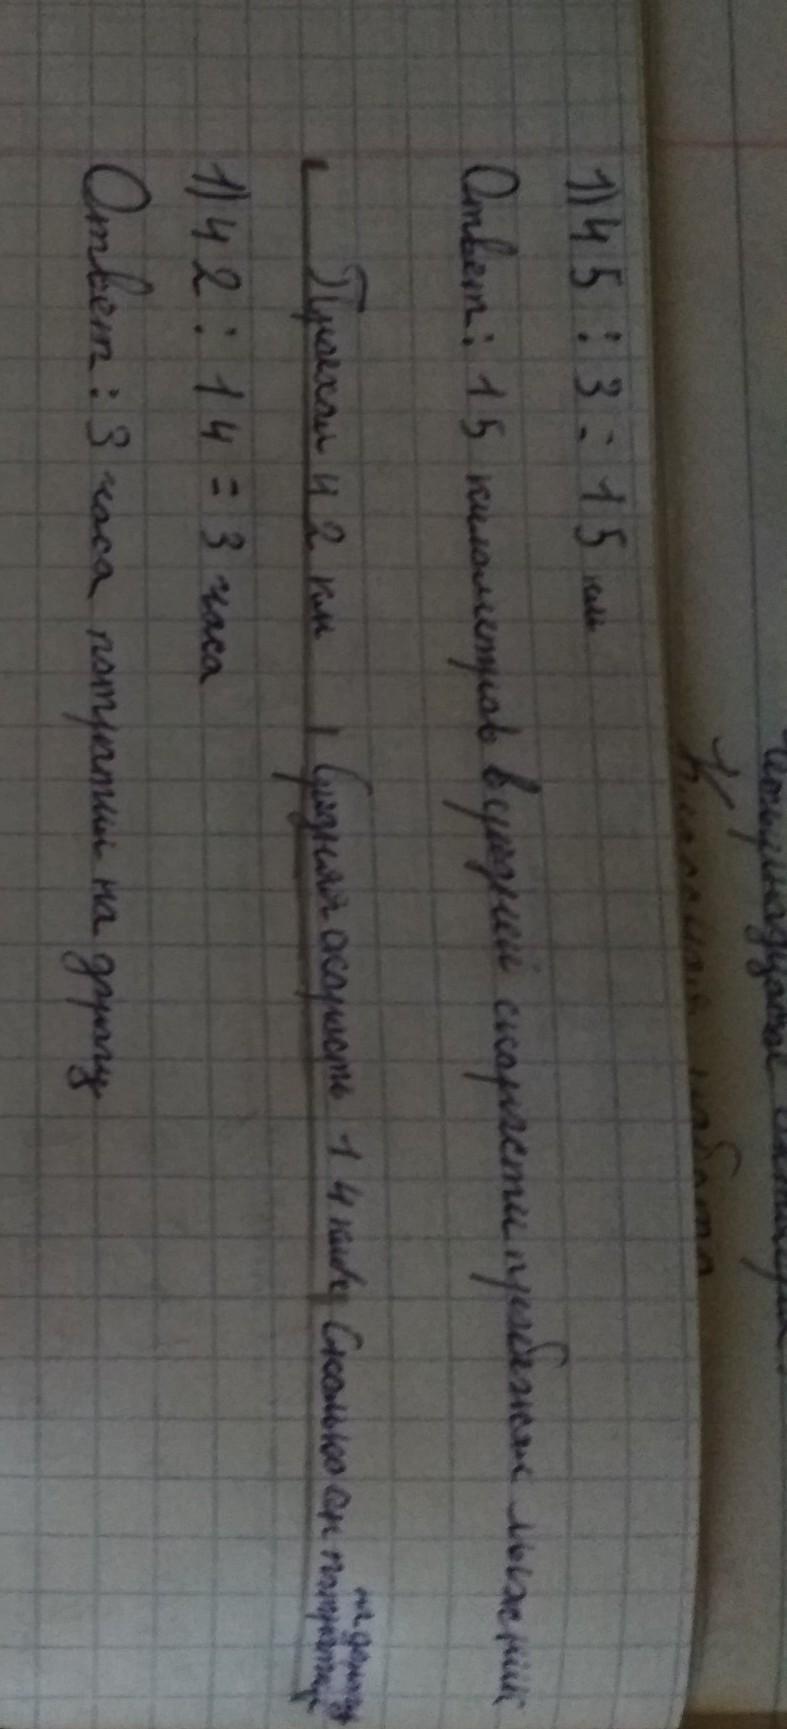 1) 45 : 3 = 15 км
Ответ: 15 километров в средней скорости пробежал лыжник
Проехал 42 км, Средняя скорость 14 км/ч, Сколько он потратил
на дорогу
1) 42 : 14 = 3 часа
Ответ: 3 часа потратил на дорогу